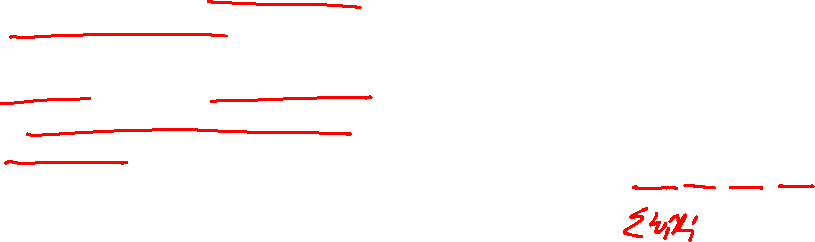 Σwᵢxᵢ